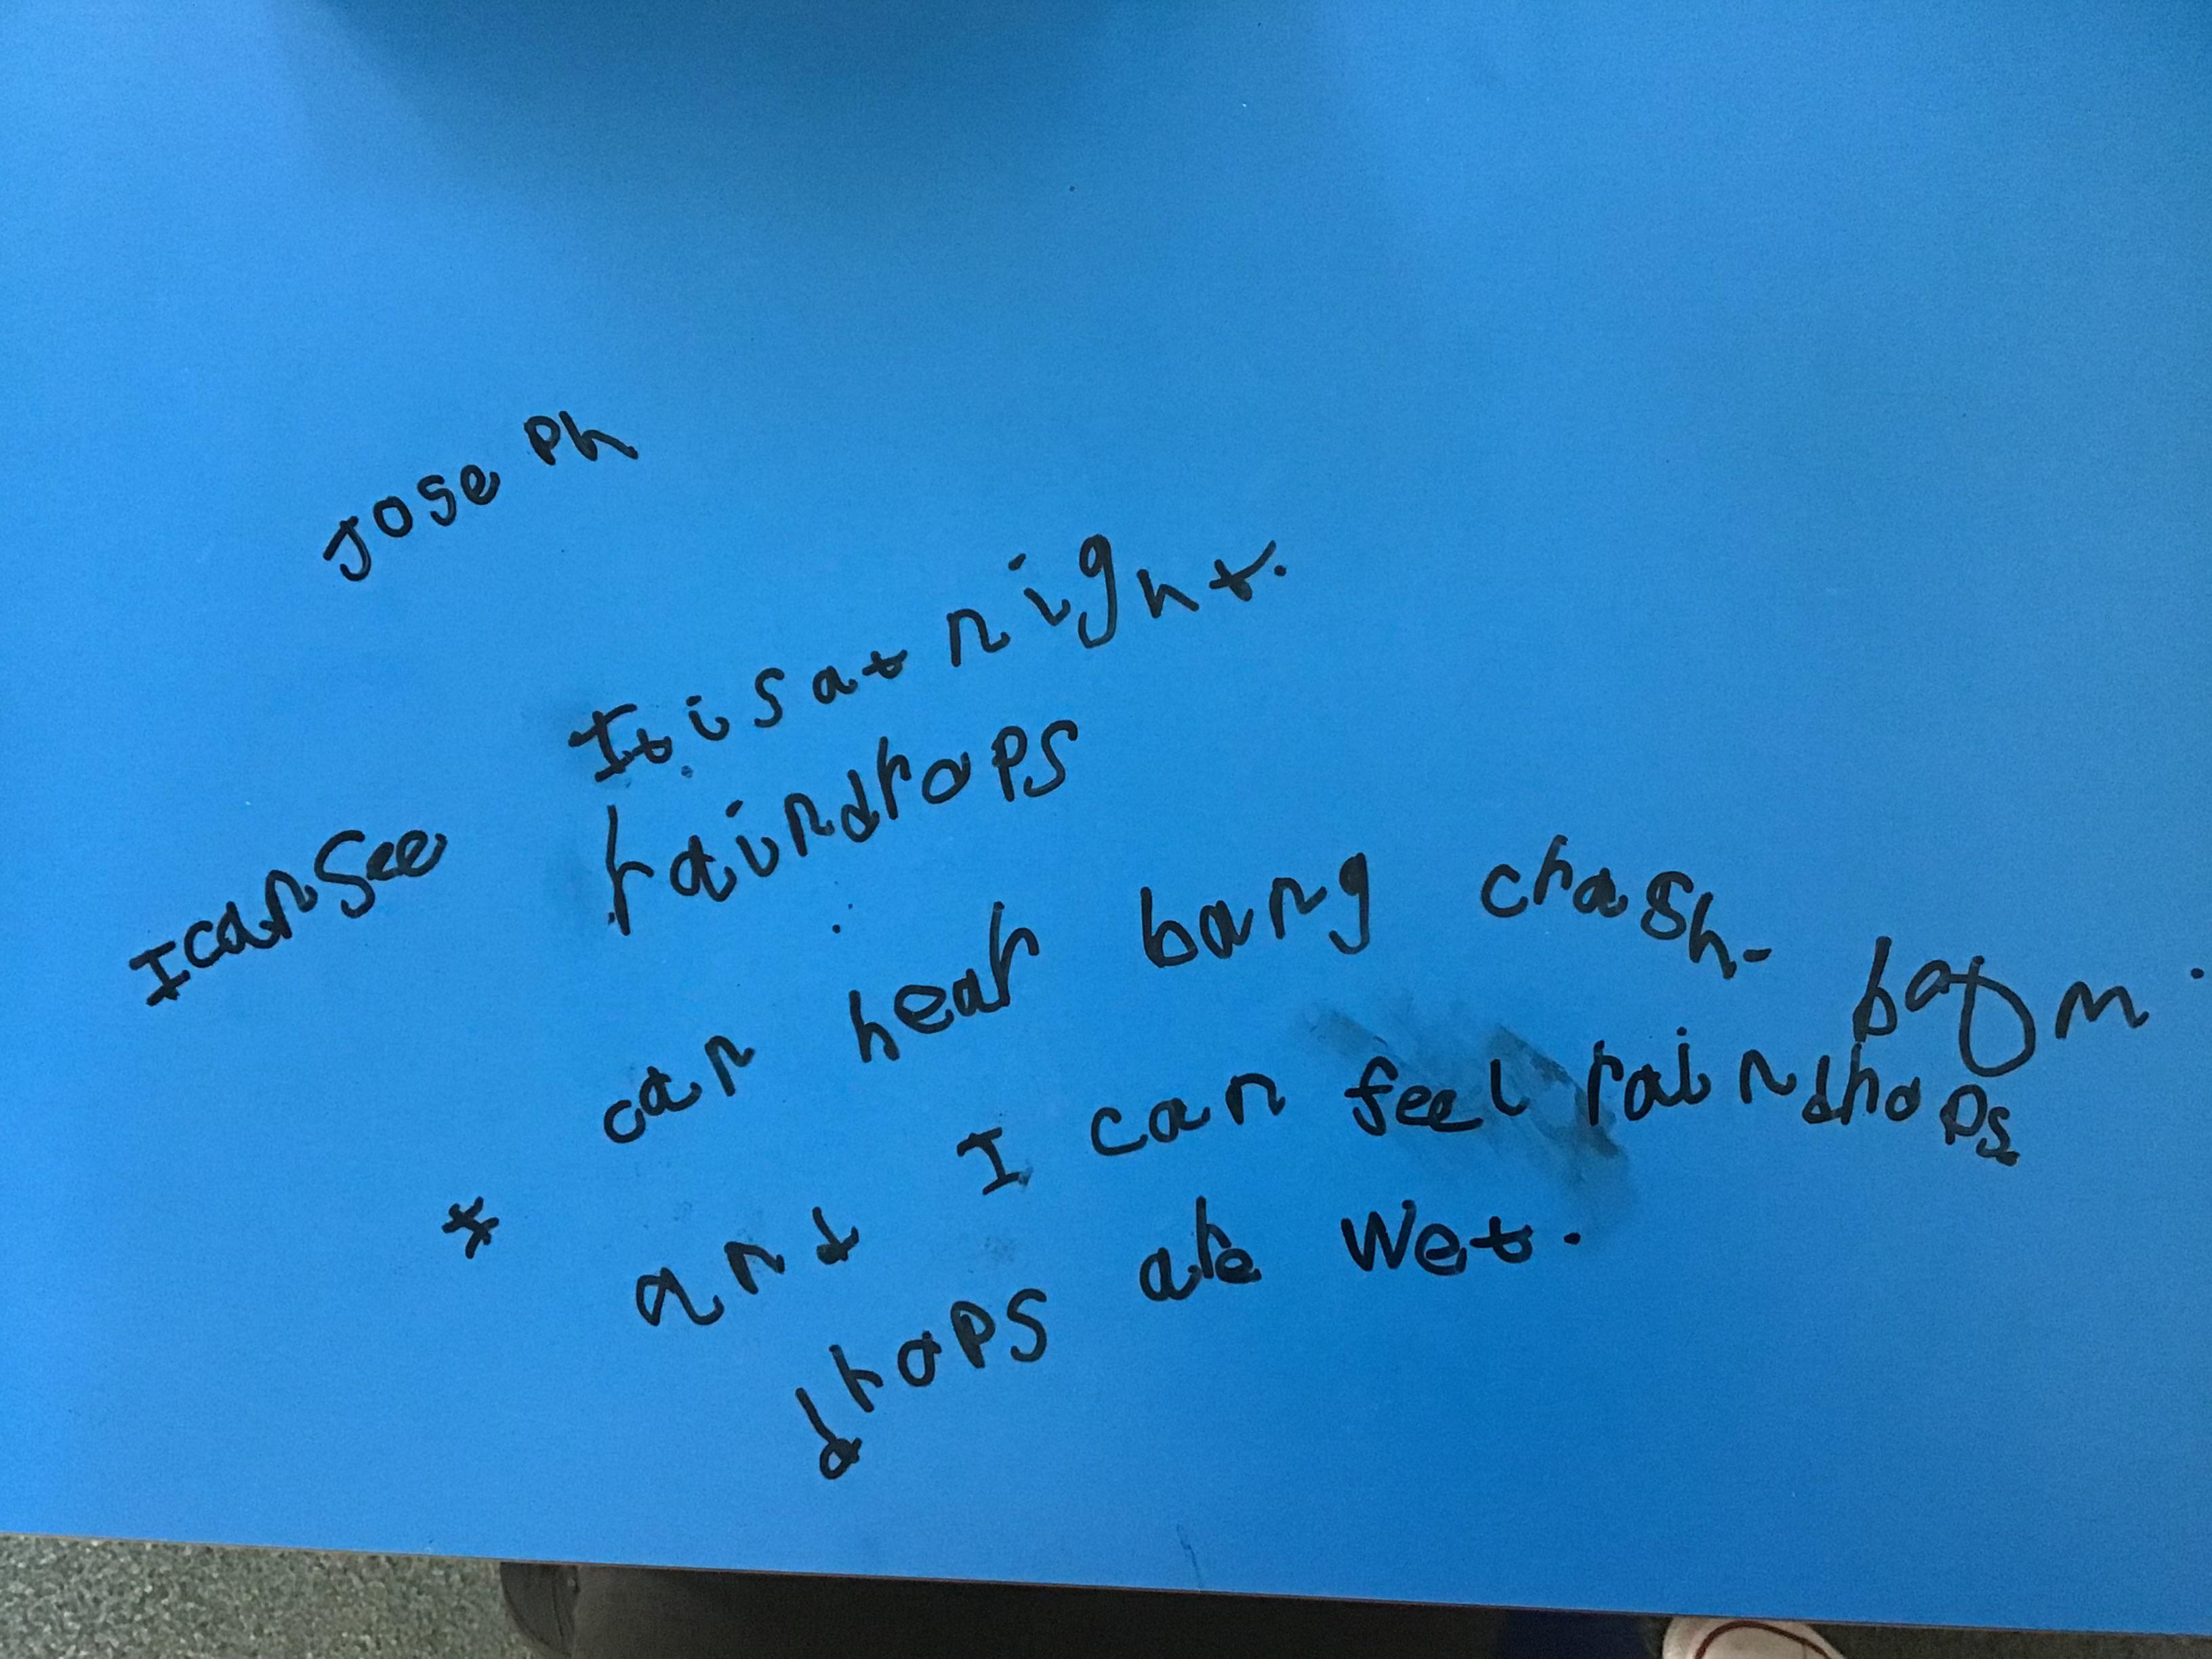 JosePh
It is at night.
I can see raindrops
I can hear bang crash.
and I can feel raindrops
drops are wet.